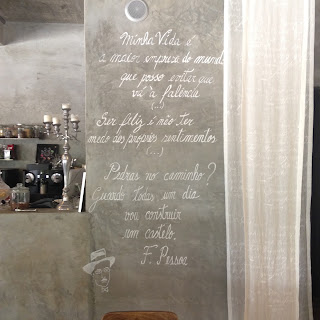 Minha Vida é
a maior empresa do mundo
que posso evitar que
vá à falência
(...)
Ser feliz é não ter
medo dos próprios sentimentos
(...)
Pedras no caminho?
Guardo todas um dia
vou construir
um castelo.
F. Pessoa